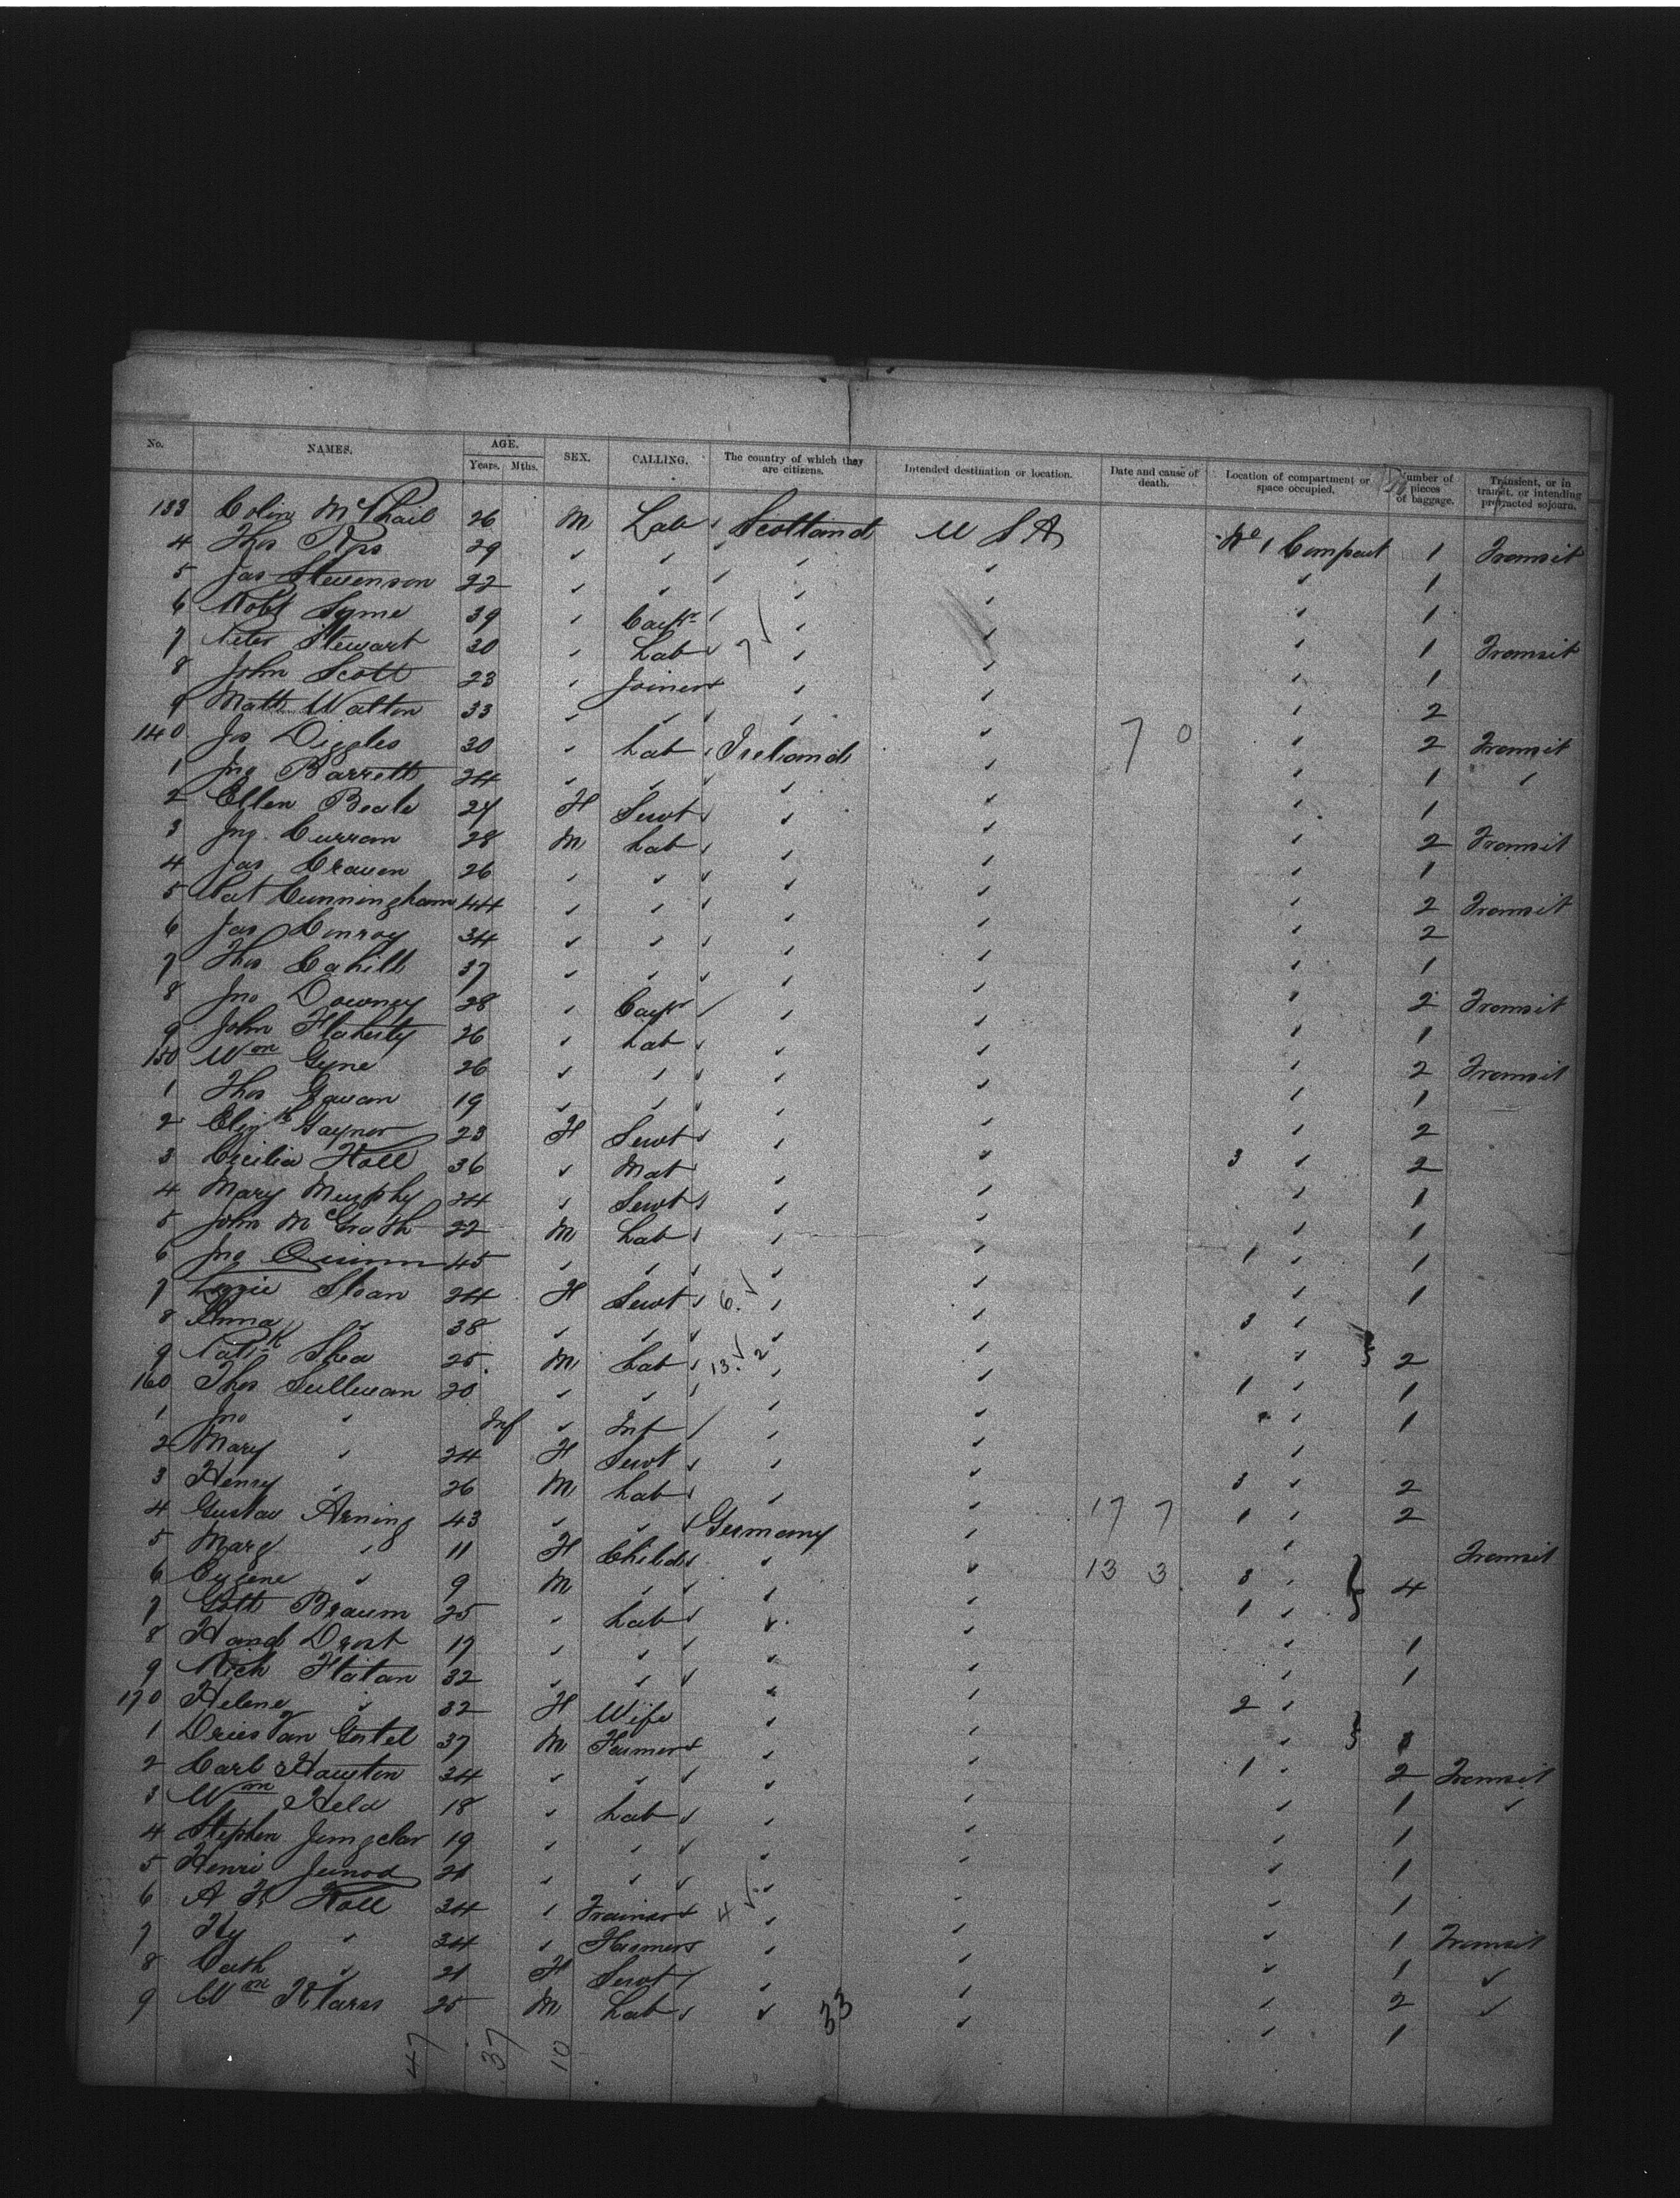 No. NAMES. AGE. Years. Mths. SEX. CALLING. The country of which they are citizens. Intended destination or location. Date and cause of death. Location of compartment or space occupied. Number of pieces of baggage. Transient, or in transit, or intending protracted sojourn.
133 Colin McPhail 26 M Lab Scotland U S A No 1 Compart 1 Transit
4 Thos 29 1
5 Jas Stevenson 22 1
6 Robt Syme 39 1 Transit
7 Peter Stewart 30 Lab 7 1
8 John Scott 23 Joiner 2
9 Matth Walton 33 2 Transit
140 Js Diggles 30 Lab Ireland 7 0 1
1 Jno Barrett 24 1
2 Ellen Beale 27 F Servt 2 Transit
3 Jno. Curran 28 M Lab 1
4 Jas Craven 26 2 Transit
5 Pat Cunningham 44 2
6 Jas Conroy 34 1
7 Thos Cahill 37 2 Transit
8 Jno Downey 28 1
9 John Flaherty 26 Lab 2 Transit
150 Wm Gyne 26 1
1 Thos Gavan 19 2
2 Elizth Gaynor 23 F Servt 3 2
3 Cecilia Hall 36 Mat 1
4 Mary Murphy 24 Servt 1
5 John McGrath 22 M Lab 1 1
6 Jno Quinn 45 1
7 Lizzie Sloan 24 F Servt 6. 3
8 Anna 38 2
9 Patk Shea 25 M Lab 13. 2 1 1
160 Thos Sullivan 20 1
1 Jno Inf Inf
2 Mary 24 F Servt 3 2
3 Henry 26 M Lab 17 7 1 2
4 Gustav Arning 43 Germany Transit
5 Marg 11 F Child 13 3 3 4
6 Eugene 9 M 1
7 Gott Braum 25 Lab 1
8 Hand Drost 17 1
9 Nich Flatan 32 2
170 Helene 32 F Wife
1 Dries Van Gestel 37 M Farmer 1 2 Transit
2 Carl Hawston 34 1
3 Wm Held 18 Lab 1
4 Stephen 19 1
5 Henri Junod 21 1
6 A F Koll 34 4 1 Transit
7 Hy 34 Farmer 1
8 Cath 21 F Servt 2
9 Wm Klarss 25 M Lab 33 1
47 37 10